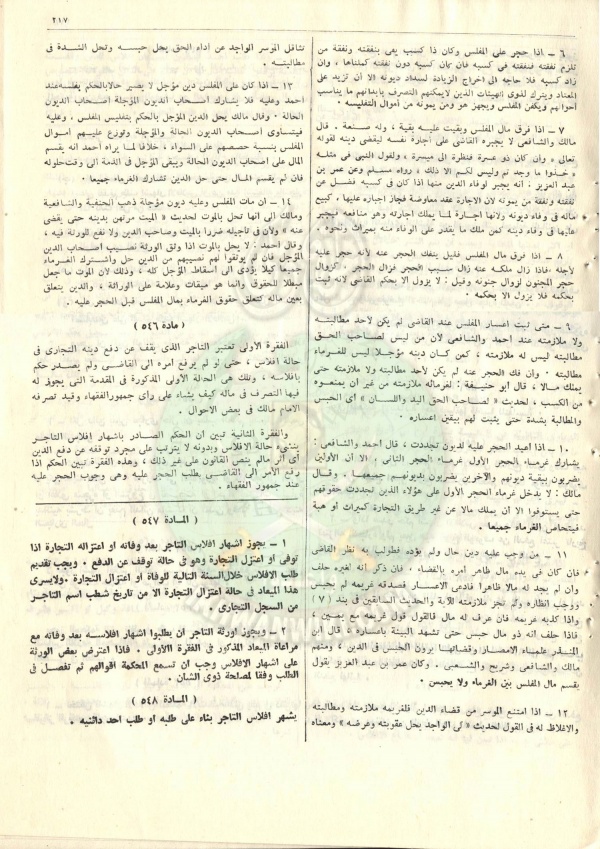 ٢١٧
٦ – اذا حجر على المفلس وكان ذا كسب يفى بنفقته ونفقة من
تلزم نفقته فنفقته فى كسبه فان كان كسبه دون نفقته كملناها ، وان
زاد كسبه فلا حاجة الى اخراج الزيادة لسداد ديونه الا ان تزيد على
المعتاد ويترك لذوى الهيئات الذين لا يمكنهم التصرف بأبدانهم ما يناسب
أحوالهم ويكفن المفلس ويجهز هو ومن يمونه من أموال التفليسة .
٧ – اذا فرق مال المفلس وبقيت عليه بقية ، وله صنعة . قال
مالك والشافعى لا يجبره القاضى على اجارة نفسه ليقضى دينه لقوله
تعالى « وان كان ذو عسرة فنظرة الى ميسرة » ولقول النبى فى مثله
« خذوا ما وجدتم وليس لكم الا ذلك » رواه مسلم وعن عمر بن
عبد العزيز . أنه يجبر لوفاء الدين منها اذا كان فى كسبه فضل عن
نفقته ونفقة من يمونه لان الاجارة عقد معاوضة فجاز اجباره عليها ، كبيع
ماله فى وفاء ديونه ولانها اجارة لما يملك اجارته وهو منافعه فيجبر
عليها فى وفاء دينه كمن ملك ما يقدر على الوفاء منه بميراث ونحوه .
٨ – اذا فرق مال المفلس فليل ينفك الحجر عنه لأنه حجر عليه
لأجله فاذا زال ملكه عنه زال سبب الحجر فزال الحجر . كزوال
حجر المجنون لزوال جنونه وقيل : لا يزول الا بحكم القاضى لانه ثبت
بحكمه فلا يزول الا بحكمه .
٩ – متى ثبت اعسار المفلس عند القاضى لم يكن لأحد مطالبته
ولا ملازمته عند احمد والشافعى لأن من ليس لصاحب الحق
مطالبته ليس له ملازمته ، كمن كان دينه مؤجلا ليس للغرماء
مطالبته . وان فك الحجر عنه لم يكن لأحد مطالبته ولا ملازمته حتى
يملك مالا ، قال أبو حنيفة : لغرمائه ملازمته من غير ان يمنعوه
من الكسب ، لحديث « لصاحب الحق اليد واللسان » أى الحبس
والمطالبة بشدة حتى يثبت لهم بيقين اعساره .
١٠ – اذا أعيد الحجر عليه لديون تجددت ، قال احمد والشافعى :
يشارك غرماء الحجر الأول غرماء الحجر الثانى ، الا أن الأولين
يضربون ببقية ديونهم والآخرين يضربون بديونهم جميعها . وقال
مالك : لا يدخل غرماء الحجر الأول على هؤلاء الذين تجددت حقوقهم
حتى يستوفوا الا أن يملك مالا من غير طريق التجارة كميراث او هبة
فيتحاص الغرماء جميعا .
١١ – من وجب عليه دين حال ولم يؤده فطولب به نظر القاضى
فان كان فى يده مال ظاهر أمره بالقضاء ، فان ذكر أنه لغيره حلف
وان لم يجد له مالا ظاهرا فادعى الاعسار فصدقه غريمه لم يحبس
ووجب انظاره ولم تجز ملازمته للآية والحديث السابقين فى بند (٧)
واذا كذبه غريمه فان عرف له مال فالقول قول غريمه مع يمينه .
فاذا حلف أنه ذو مال حبس حتى تشهد البينة باعساره ، قال ابن
المنذر علماء الامصار وقضاتها يرون الحبس فى الدين ، ومنهم
مالك والشافعى وشريح والشعبى . وكان عمر بن عبد العزيز يقول
يقسم مال المفلس بين الغرماء ولا يحبس .
١٢ – اذا امتنع الموسر من قضاء الدين فلغريمه ملازمته ومطالبته
والاغلاظ له فى القول لحديث « لى الواجد يحل عقوبته وعرضه » ومعناه
تثاقل الموسر الواجد عن اداء الحق يحل حبسه وتحل الشدة فى
مطالبته .
١٣ – اذا كان على المفلس دين مؤجل لا يصير حالا بالحكم بفلسه عند
احمد وعليه فلا يشارك اصحاب الديون المؤجلة اصحاب الديون
الحالة . وقال مالك يحل الدين المؤجل بالحكم بتفليس المفلس ، وعليه
فيتساوى أصحاب الديون الحالة والمؤجلة وتوزع عليهم اموال
المفلس بنسبة حصصهم على السواء ، خلافا لما يراه احمد أنه يقسم
المال على أصحاب الديون الحالة ويبقى المؤجل فى الذمة الى وقت حلوله
فان لم يقسم المال حتى حل الدين تشارك الغرماء جميعا .
١٤ – ان مات المفلس وعليه ديون مؤجلة ذهب الحنفية والشافعية
ومالك الى انها تحل بالموت لحديث « الميت مرتهن بدينه حتى يقضى
عنه » ولان فى تأجيله ضررا بالميت وصاحب الدين ولا نفع للورثة فيه ،
وقال احمد : لا يحل بالموت اذا وثق الورثة نصيب أصحاب الدين
المؤجل فان لم يوثقوا لهم نصيبهم من الدين حل واشترك الغرماء
جميعا كيلا يؤدى الى اسقاط المؤجل كله ، وذلك لان الموت ما جعل
مبطلا للحقوق وانما هو ميقات وعلامة على الوراثة ، والدين يتعلق
بعين ماله كتعلق حقوق الغرماء بمال المفلس قبل الحجر عليه .
( مادة ٥٤٦ )
الفقرة الأولى تعتبر التاجر الذى يقف عن دفع دينه التجارى فى
حالة افلاس ، حتى لو لم يرفع أمره الى القاضى ولم يصدر حكم
بافلاسه ، وتلك هى الحالة الأولى المذكورة فى المقدمة التى يجوز له
فيها التصرف فى ماله كيف يشاء على رأى جمهور الفقهاء وقيد تصرفه
الامام مالك فى بعض الاحوال .
والفقرة الثانية تبين ان الحكم الصادر باشهار افلاس التاجر
ينشىء حالة الافلاس وبدونه لا يترتب على مجرد توقفه عن دفع الدين
أى أثر مالم ينص القانون على غير ذلك ، وهذه الفقرة تبين الحكم اذا
رفع الأمر الى القاضى بطلب الحجر عليه وهى وجوب الحجر عليه
عند جمهور الفقهاء .
( المادة ٥٤٧ )
١ – يجوز اشهار افلاس التاجر بعد وفاته او اعتزاله التجارة اذا
توفى او اعتزل التجارة وهو فى حالة توقف عن الدفع ، ويجب تقديم
طلب الافلاس خلال السنة التالية للوفاة أو اعتزال التجارة . ولا يسرى
هذا الميعاد فى حالة اعتزال التجارة الا من تاريخ شطب اسم التاجر
من السجل التجارى .
٢ – ويجوز لورثة التاجر ان يطلبوا اشهار افلاسه بعد وفاته مع
مراعاة الميعاد المذكور فى الفقرة الأولى . فاذا اعترض بعض الورثة
على اشهار الافلاس وجب ان تسمع المحكمة اقوالهم ثم تفصل فى
الطلب وفقا لمصلحة ذوى الشأن .
( المادة ٥٤٨ )
يشهر افلاس التاجر بناء على طلبه او طلب احد دائنيه .